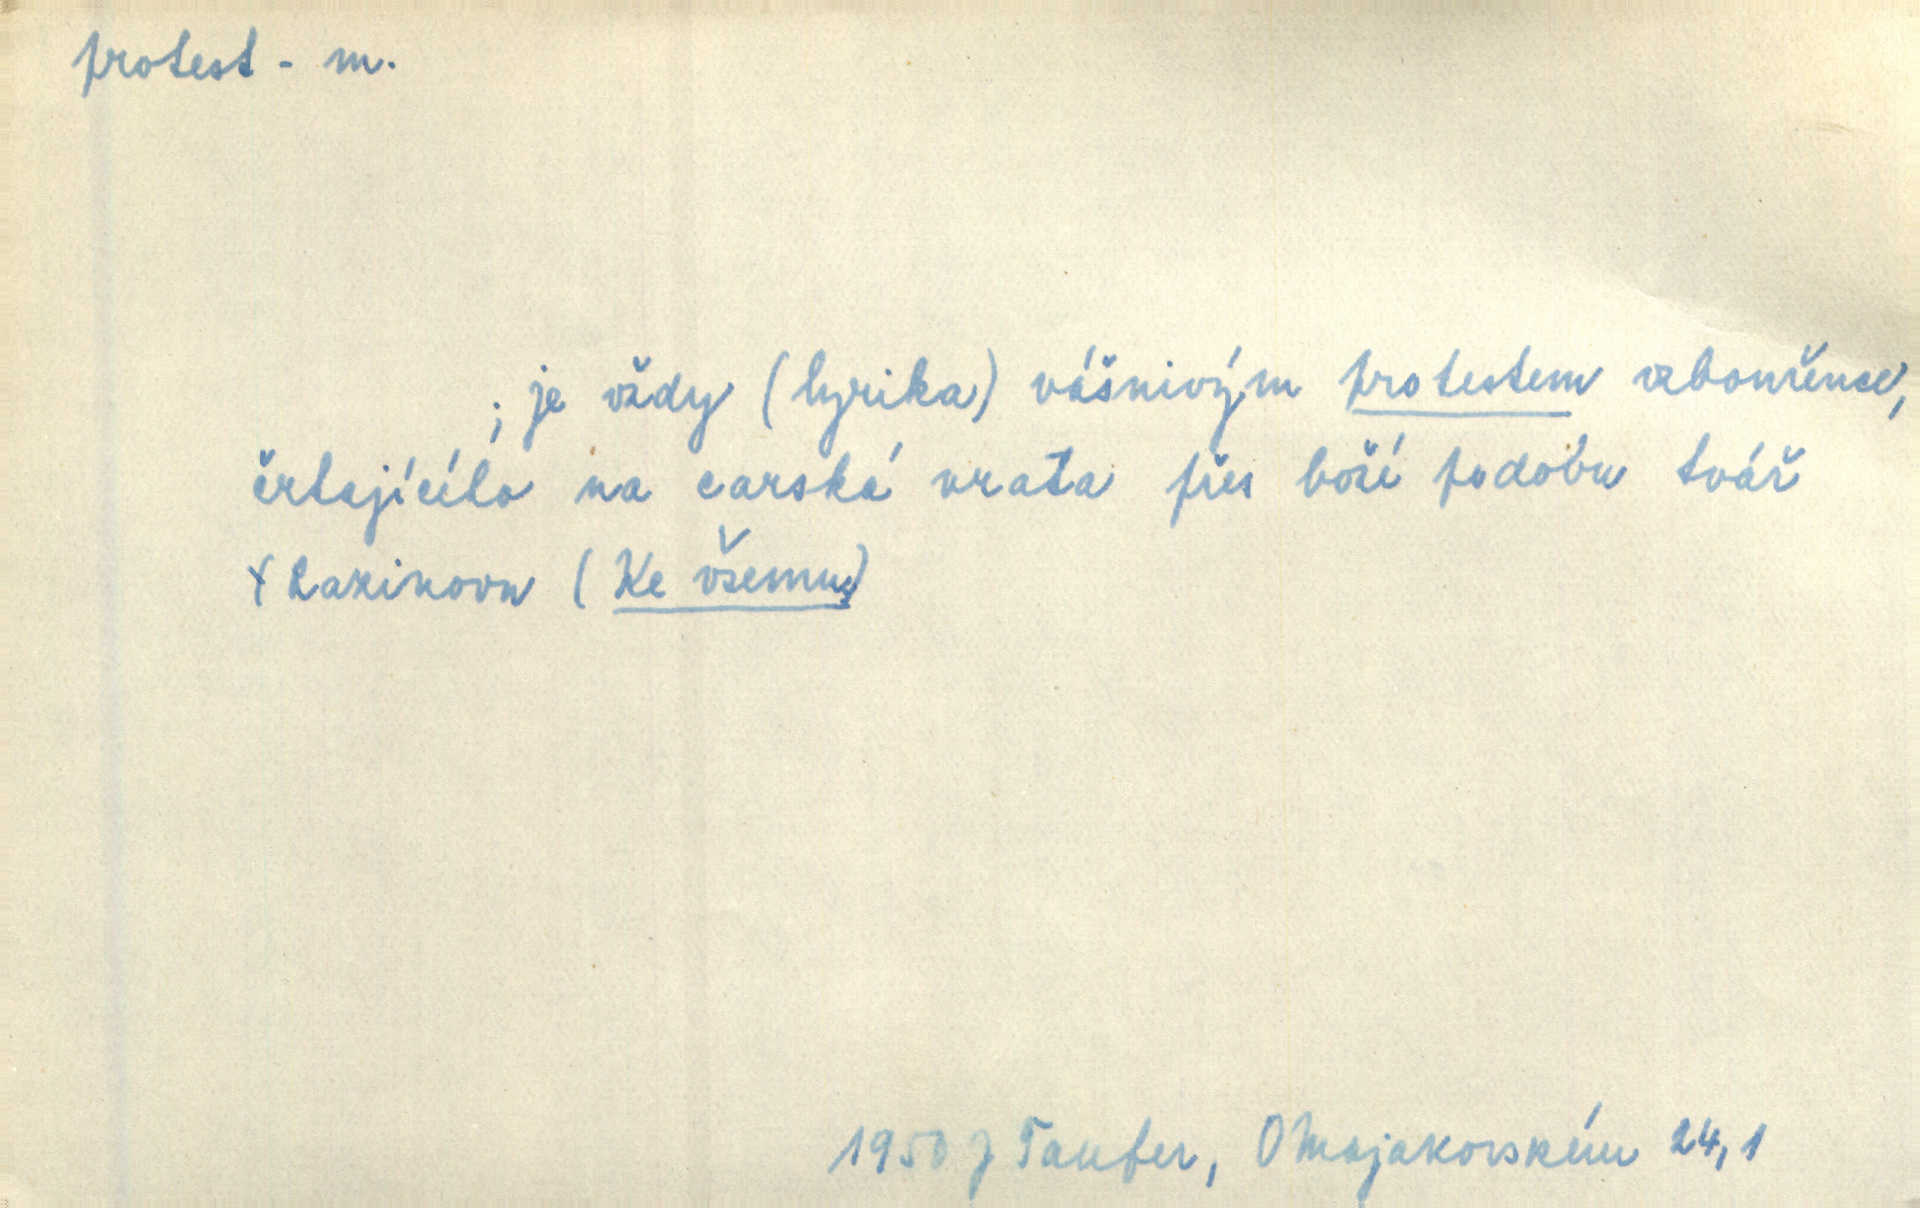 protest - m.
; je vždy (lyrika) vášnivým protestem vzbouřence,
črtajícího na carská vrata přes boží podobu tvář
Razinovu (Ke všemu)
1950 J Taufer, O Majakovském 24,1